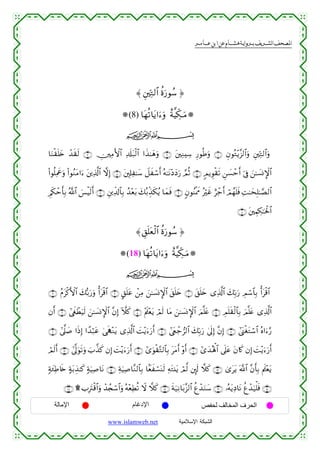 المصحف الشريف برواية هشام عن ابن عامر
﴿ سُورَةُ ٱلتِّينِ ﴾
* مَكِّيَّةٌ وَءَايَاتُهَا (8) *
بِسْمِ ٱللَّهِ ٱلرَّحْمَٰنِ ٱلرَّحِيمِ
وَٱلتِّينِ وَٱلزَّيْتُونِ ۝ وَطُورِ سِينِينَ ۝ وَهَٰذَا ٱلْبَلَدِ ٱلْأَمِينِ ۝ لَقَدْ خَلَقْنَا
ٱلْإِنسَٰنَ فِىٓ أَحْسَنِ تَقْوِيمٍ ۝ ثُمَّ رَدَدْنَٰهُ أَسْفَلَ سَٰفِلِينَ ۝ إِلَّا ٱلَّذِينَ ءَامَنُوا۟ وَعَمِلُوا۟
ٱلصَّٰلِحَٰتِ فَلَهُمْ أَجْرٌ غَيْرُ مَمْنُونٍ ۝ فَمَا يُكَذِّبُكَ بَعْدُ بِٱلدِّينِ ۝ أَلَيْسَ ٱللَّهُ بِأَحْكَمِ
ٱلْحَٰكِمِينَ ۝
﴿ سُورَةُ ٱلْعَلَقِ ﴾
* مَكِّيَّةٌ وَءَايَاتُهَا (18) *
بِسْمِ ٱللَّهِ ٱلرَّحْمَٰنِ ٱلرَّحِيمِ
ٱقْرَأْ بِٱسْمِ رَبِّكَ ٱلَّذِى خَلَقَ ۝ خَلَقَ ٱلْإِنسَٰنَ مِنْ عَلَقٍ ۝ ٱقْرَأْ وَرَبُّكَ ٱلْأَكْرَمُ ۝
ٱلَّذِى عَلَّمَ بِٱلْقَلَمِ ۝ عَلَّمَ ٱلْإِنسَٰنَ مَا لَمْ يَعْلَمْ ۝ كَلَّآ إِنَّ ٱلْإِنسَٰنَ لَيَطْغَىٰٓ ۝ أَن
رَّءَاهُ ٱسْتَغْنَىٰٓ ۝ إِنَّ إِلَىٰ رَبِّكَ ٱلرُّجْعَىٰٓ ۝ أَرَءَيْتَ ٱلَّذِى يَنْهَىٰ عَبْدًا إِذَا صَلَّىٰٓ ۝
أَرَءَيْتَ إِن كَانَ عَلَى ٱلْهُدَىٰٓ ۝ أَوْ أَمَرَ بِٱلتَّقْوَىٰٓ ۝ أَرَءَيْتَ إِن كَذَّبَ وَتَوَلَّىٰٓ ۝ أَلَمْ
يَعْلَم بِأَنَّ ٱللَّهَ يَرَىٰ ۝ كَلَّا لَئِن لَّمْ يَنتَهِ لَنَسْفَعًۢا بِٱلنَّاصِيَةِ ۝ نَاصِيَةٍ كَٰذِبَةٍ خَاطِئَةٍ
۝ فَلْيَدْعُ نَادِيَهُۥ ۝ سَنَدْعُ ٱلزَّبَانِيَةَ ۝ كَلَّا لَا تُطِعْهُ وَٱسْجُدْ وَٱقْتَرِب ۩ ۝
الحرف المخالف لحفص الإدغام الإمالة
الشبكة الإسلامية www.islamweb.net